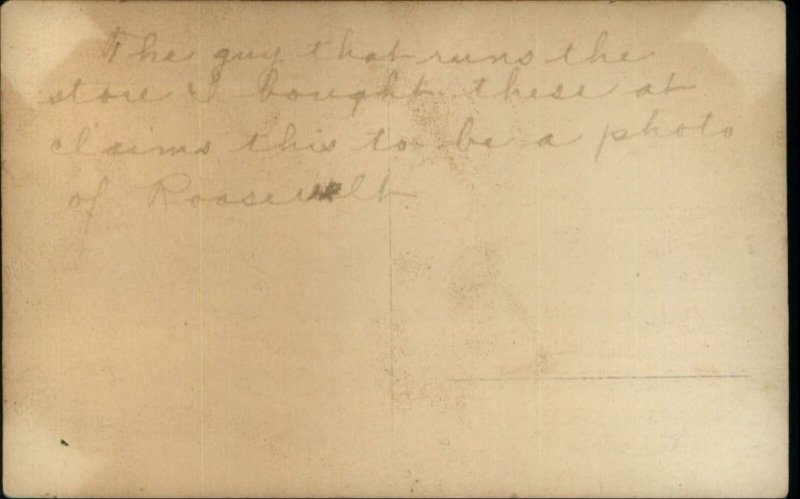 The guy that runs the
store I bought these at
claims this to be a photo
of Roosevelt